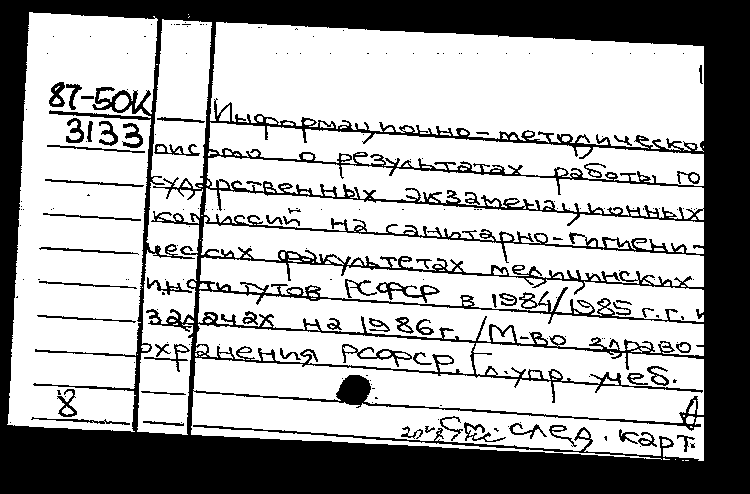 87-50К
3133
Информационно-методическое
письмо о результатах работы го
сударственных экзаменационных
комиссий на санитарно-гигиени-
ческих факультетах медицинских
институтов РСФСР в 1984/1985 г.г. и
задачах на 1986 г. / М-во здраво-
охранения РСФСР. Гл. упр. учеб.
8
См. след. карт.